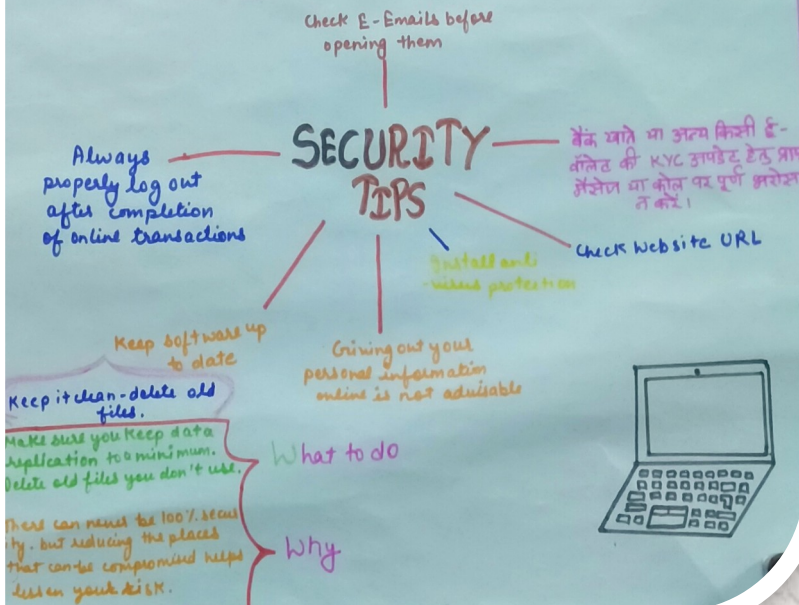 Check E-Emails before
opening them
SECURITY
TIPS
Always
properly log out
after completion
of online transactions
बैंक खाते या अन्य किसी ई-
वॉलेट की KYC अपडेट हेतु प्राप्त
मैसेज या कॉल पर पूर्ण भरोसा
न करें।
Check Website URL
Install anti
-virus protection
Keep software up
to date
Giving out your
personal information
online is not advisable
Keep it clean-delete old
files.
Make sure you keep data
replication to a minimum.
Delete old files you don't use.
What to do
There can never be 100% secur
ity. but reducing the places
that can be compromised helps
lessen your risk.
Why